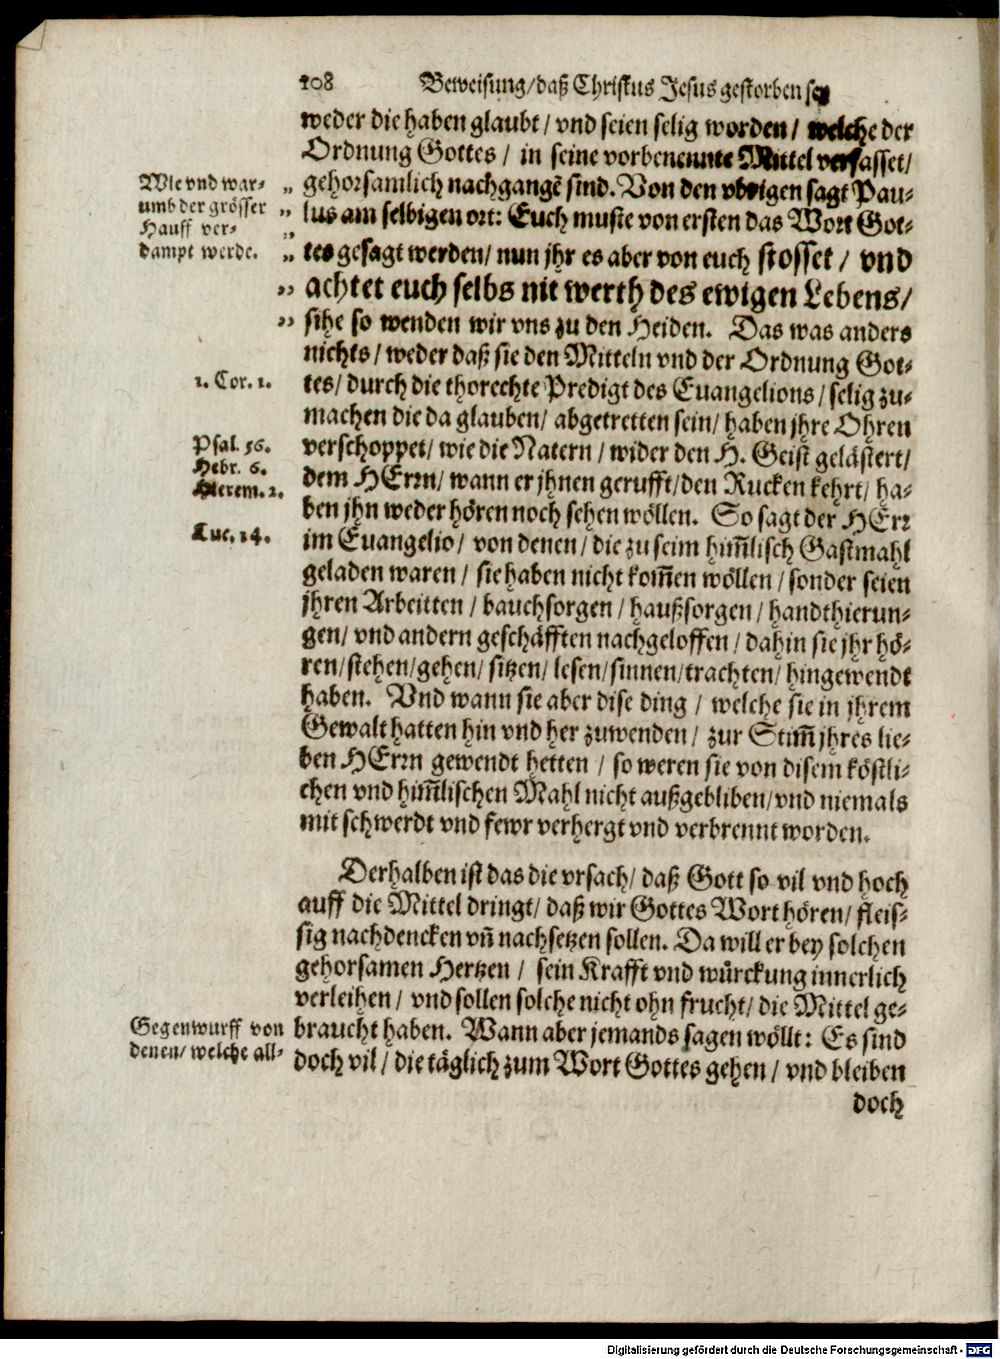 108 Beweisung/ daß Christus Jesus gestorben sey
weder die haben glaubt/ vnd seien selig worden/ welche der
Ordnung Gottes/ in seine vorbenennte Mittel verfasset/
gehorsamlich nachgangẽ sind. Von den vbrigen sagt Pau-
lus am selbigen ort: Euch muste von ersten das Wort Got-
tes gesagt werden/ nun jhr es aber von euch stosset/ vnd
achtet euch selbs nit werth des ewigen Lebens/
sihe so wenden wir vns zu den Heiden. Das was anders
nichts/ weder daß sie den Mitteln vnd der Ordnung Got-
tes/ durch die thorechte Predigt des Euangelions/ selig zu-
machen die da glauben/ abgetretten sein/ haben jhre Ohren
verschoppet/ wie die Natern/ wider den H. Geist gelästert/
dem HErrn/ wann er jhnen gerufft/ den Rucken kehrt/ ha-
ben jhn weder hören noch sehen wöllen. So sagt der HErr
im Euangelio/ von denen/ die zu seim him̃lisch Gastmahl
geladen waren/ sie haben nicht kom̃en wöllen/ sonder seien
jhren Arbeitten/ bauchsorgen/ haußsorgen/ handthierun-
gen/ vnd andern geschäfften nachgeloffen/ dahin sie jhr hö-
ren/ stehen/ gehen/ sitzen/ lesen/ sinnen/ trachten/ hingewendt
haben. Vnd wann sie aber dise ding/ welche sie in jhrem
Gewalt hatten hin vnd her zuwenden/ zur Stim̃ jhres lie-
ben HErrn gewendt hetten/ so weren sie von disem köstli-
chen vnd him̃lischen Mahl nicht außgebliben/ vnd niemals
mit schwerdt vnd fewr verhergt vnd verbrennt worden.
Derhalben ist das die vrsach/ daß Gott so vil vnd hoch
auff die Mittel dringt/ daß wir Gottes Wort hören/ fleis-
sig nachdencken vñ nachsetzen sollen. Da will er bey solchen
gehorsamen Hertzen/ sein Krafft vnd würckung innerlich
verleihen/ vnd sollen solche nicht ohn frucht/ die Mittel ge-
braucht haben. Wann aber jemands sagen wöllt: Es sind
doch vil/ die täglich zum Wort Gottes gehen/ vnd bleiben
doch
Wie vnd war-
umb der grösser
Hauff ver-
dampt werde.
„
„
„
„
„
„
1. Cor. 1.
Psal. 56.
Hebr. 6.
Hierem. 2.
Luc. 14.
Gegenwurff von
denen/ welche all-
Digitalisierung gefördert durch die Deutsche Forschungsgemeinschaft - DFG